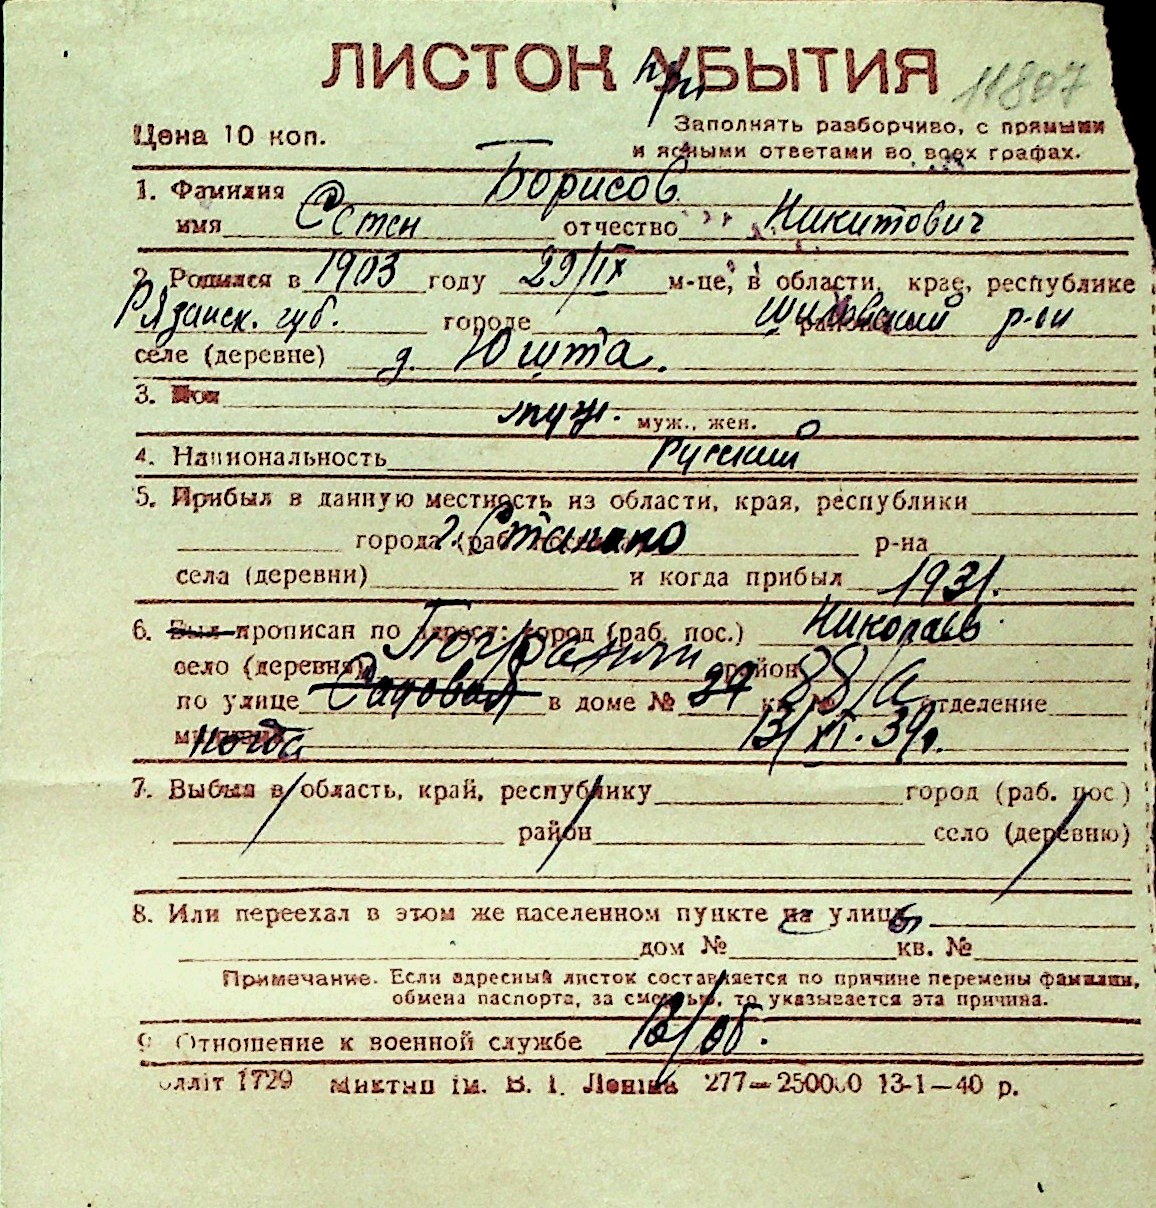 ЛИСТОК УБЫТИЯ
при
11807
Цена 10 коп.
Заполнять разборчиво, с прямыми
и ясными ответами во всех графах.
1. Фамилия Борисов
имя Стен отчество Никитович
2. Родился в 1903 году 29/IX м-це, в области, крае, республике
Рязанск. губ. городе районе Шиловский р-он
селе (деревне) д. Юшта.
3. Пол муж. муж., жен.
4. Национальность Русский
5. Прибыл в данную местность из области, края, республики
города (раб. г. Сталино р-на
села (деревни) и когда прибыл 1931.
6. Был прописан по адресу: город (раб. пос.) Николаев
село (деревня) район
по улице Садовая в доме № 37 кв. № 88/а отделение
когда 13/XI. 39г.
7. Выбыл в область, край, республику город (раб. пос.)
район село (деревню)
8. Или переехал в этом же населенном пункте на улицу
с ы
дом № кв. №
Примечание. Если адресный листок составляется по причине перемены фамилии,
обмена паспорта, за смертью, то указывается эта причина.
9. Отношение к военной службе В/об.
олліт 1729 Миктип ім. В. І. Леніна 277—250000 13-1—40 р.